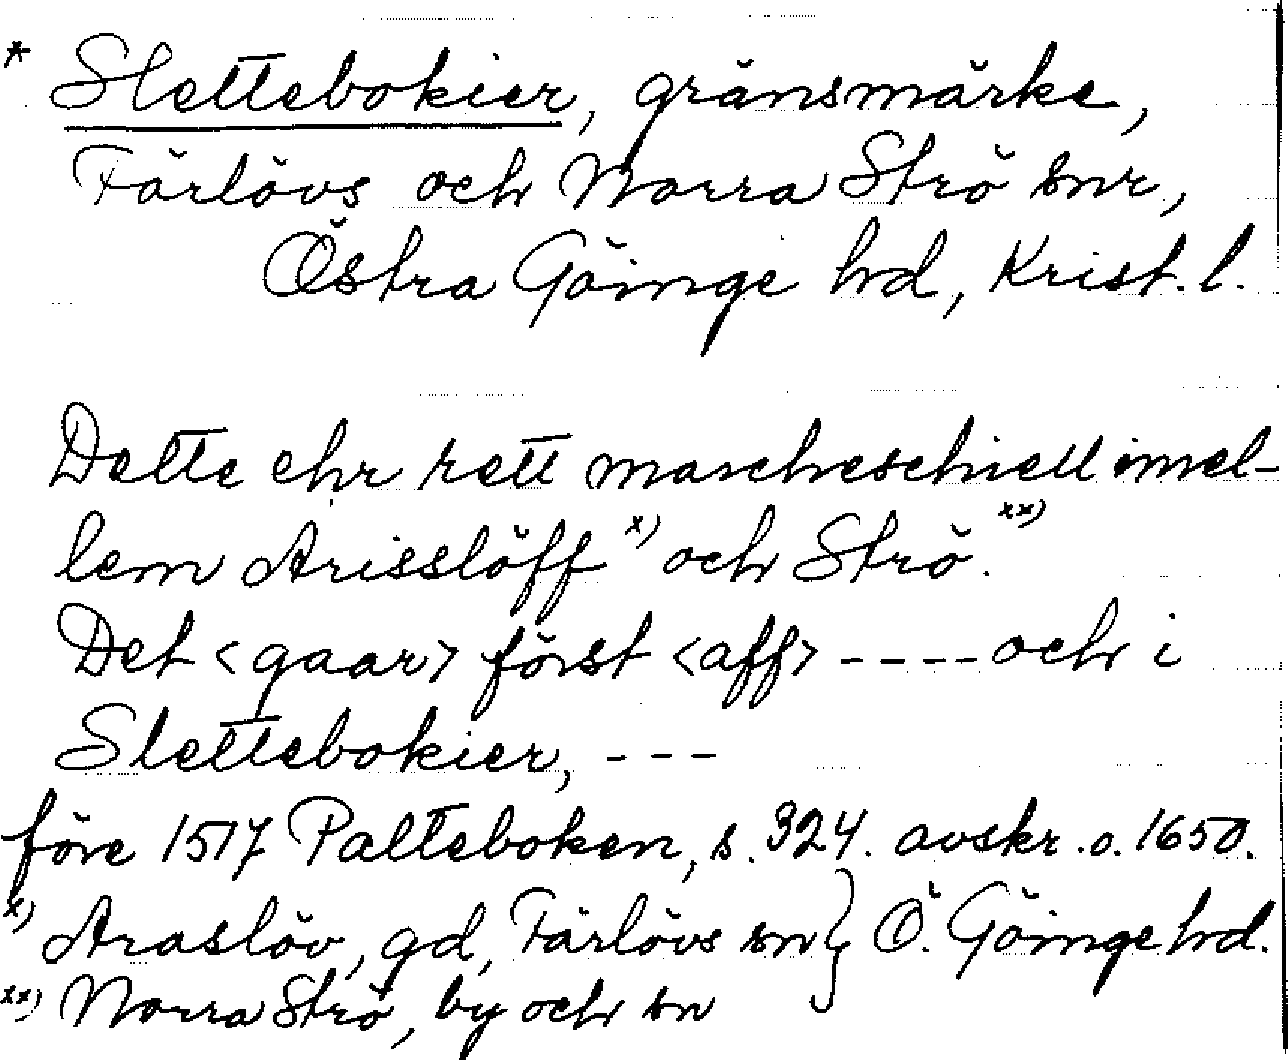 * Slettebokier, gränsmärke,
Färlövs och Norra Strö snr,
Östra Göinge hd, Krist. l.
Dette ehr rett marcheschiell imel-
lem Arisslöff x) och Strö. xx)
Det <gaar> först <aff> ---- och i
Slettebokier, ---
före 1517 Palteboken, s. 324. avskr. o. 1650.
x) Araslöv, gd, Färlövs sn } Ö. Göinge hd.
xx) Norra Strö, by och sn